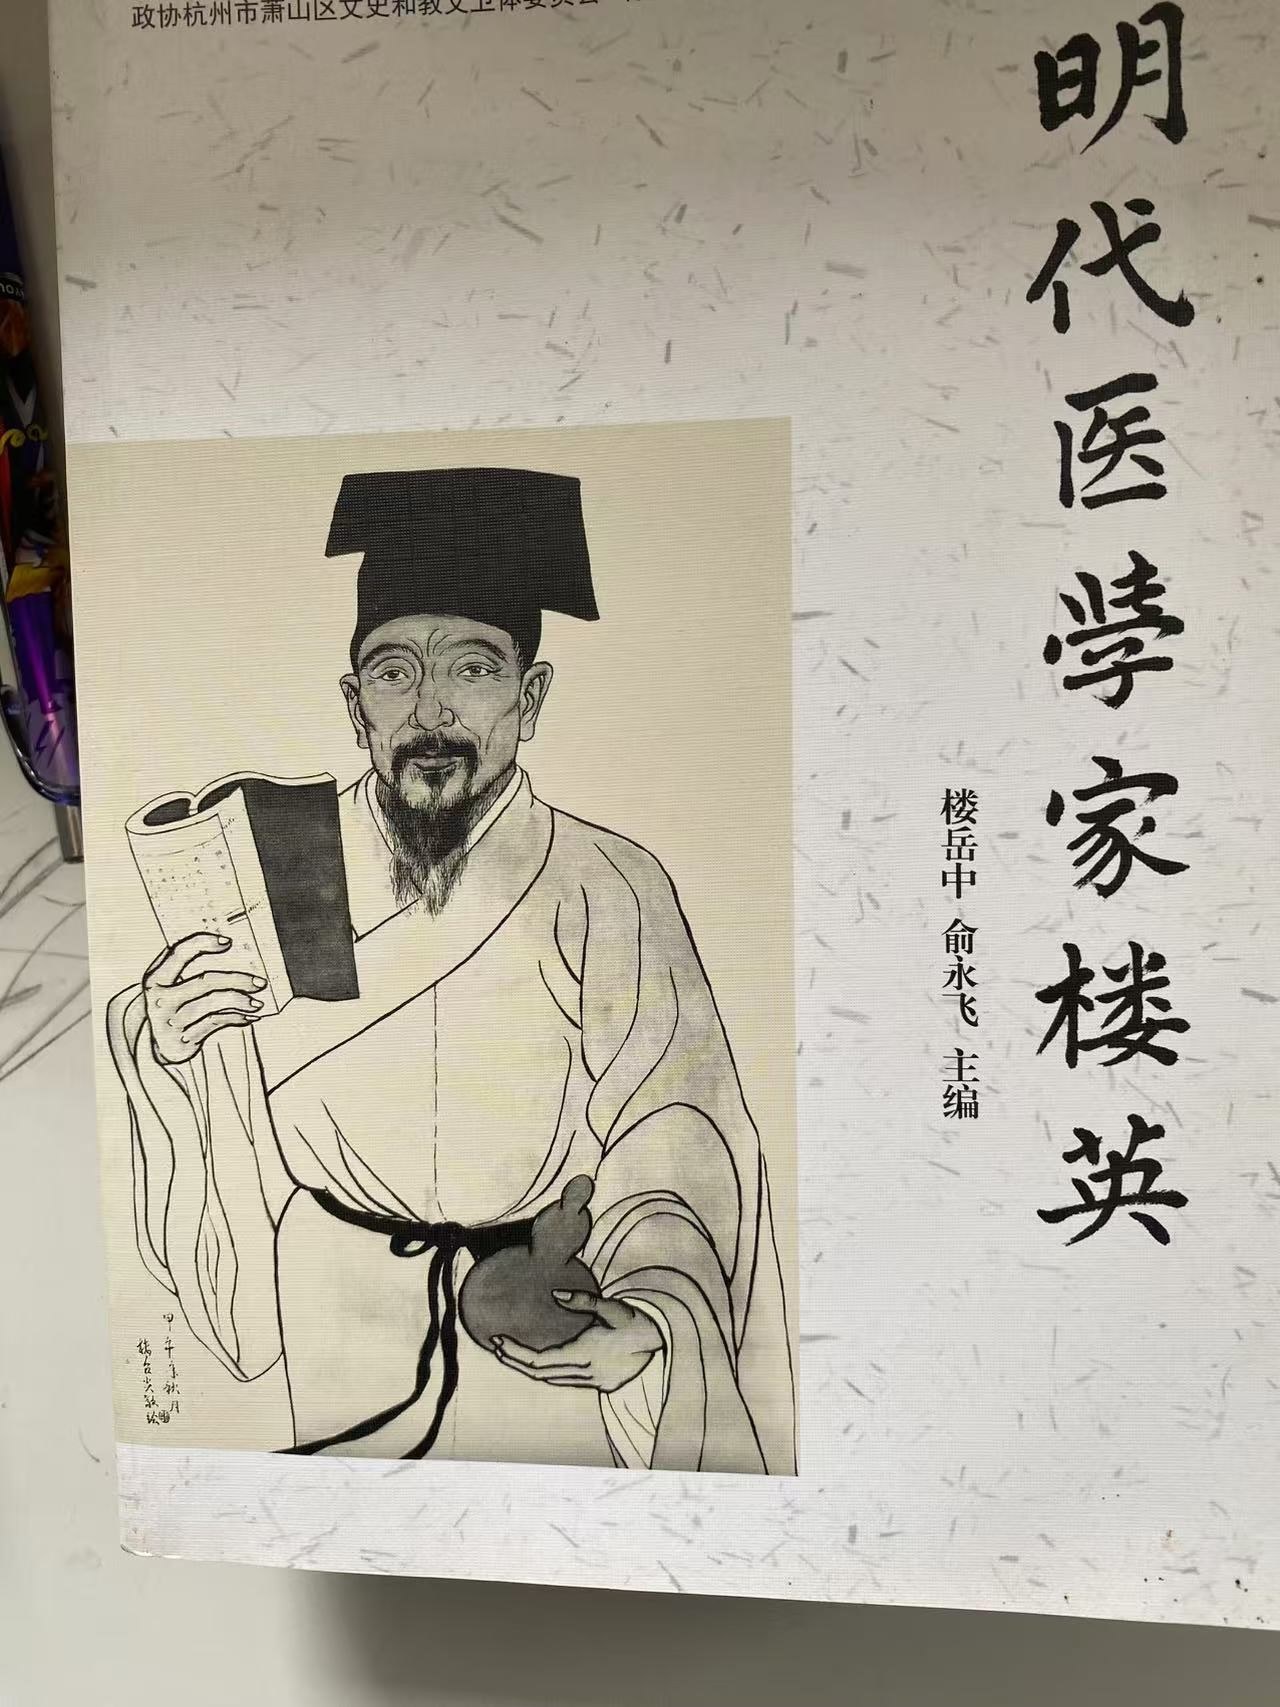 政协杭州市萧山区文史和教文卫体委员会
明代医学家楼英
楼岳中 俞永飞 主编
甲午年秋月